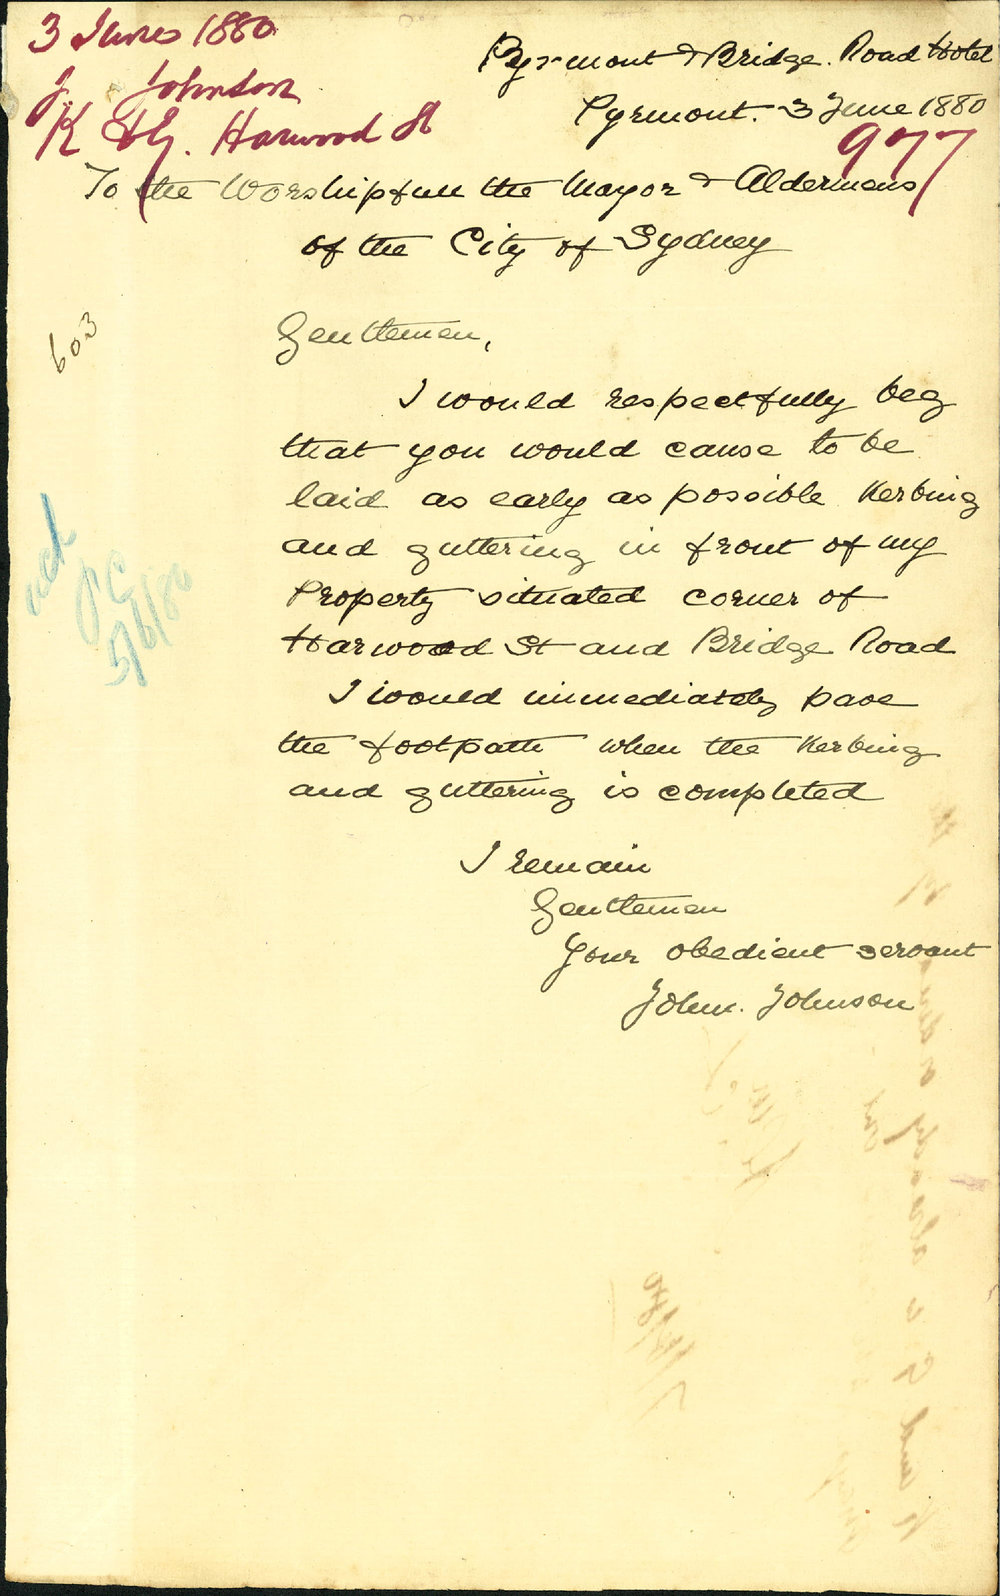 3 June 1880
J. Johnson
K & G. Harwood St
Pyrmont & Bridge. Road Hotel
Pyrmont. 3 June 1880
977
To the Worshipfull the Mayor & Aldermens
of the City of Sydney
603
Gentlemen,
I would respectfully beg
that you would cause to be
laid as early as possible Kerbing
and guttering in front of my
Property situated corner of
Harwood St and Bridge Road
I would immediately pave
the footpath when the Kerbing
and guttering is completed
I remain
Gentlemen
Your obedient servant
John. Johnson
5/6/80